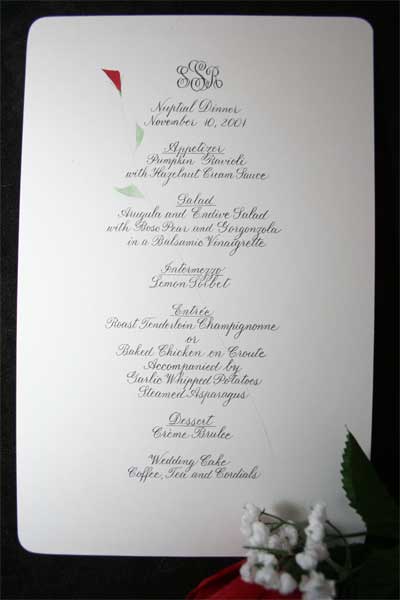 ESR
Nuptial Dinner
November 10, 2001
Appetizer
Pumpkin Ravioli
with Hazelnut Cream Sauce
Salad
Arugula and Endive Salad
with Bosc Pear and Gorgonzola
in a Balsamic Vinaigrette
Intermezzo
Lemon Sorbet
Entrée
Roast Tenderloin Champignonne
or
Baked Chicken en Croute
Accompanied by
Garlic Whipped Potatoes
Steamed Asparagus
Dessert
Crème Brulee
Wedding Cake
Coffee, Tea and Cordials